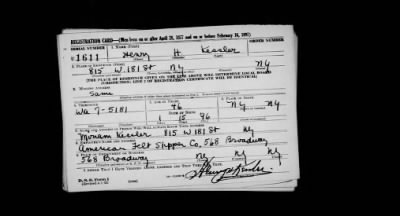 REGISTRATION CARD—(Men born on or after April 28, 1877 and on or before February 16, 1897)
SERIAL NUMBER 1. NAME (Print) ORDER NUMBER
U 1611 Henry H. Kessler
2. PLACE OF RESIDENCE (Print)
815 W. 181 St NY NY
[THE PLACE OF RESIDENCE GIVEN ON THE LINE ABOVE WILL DETERMINE LOCAL BOARD
JURISDICTION; LINE 2 OF REGISTRATION CERTIFICATE WILL BE IDENTICAL]
3. MAILING ADDRESS
Same
4. TELEPHONE 5. AGE IN YEARS 6. PLACE OF BIRTH
Wa 7-5181 46 NY
DATE OF BIRTH
1 15 96 NY
7. NAME AND ADDRESS OF PERSON WHO WILL ALWAYS KNOW YOUR ADDRESS
Kessler 815 W 181 St NY
8. EMPLOYER'S NAME AND ADDRESS
American Felt Slipper Co. 568 Broadway
9. PLACE OF EMPLOYMENT OR BUSINESS
568 Broadway NY NY
I AFFIRM THAT I HAVE VERIFIED ABOVE ANSWERS AND THAT THEY ARE TRUE.
D. S. S. Form 1
Henry H Kessler